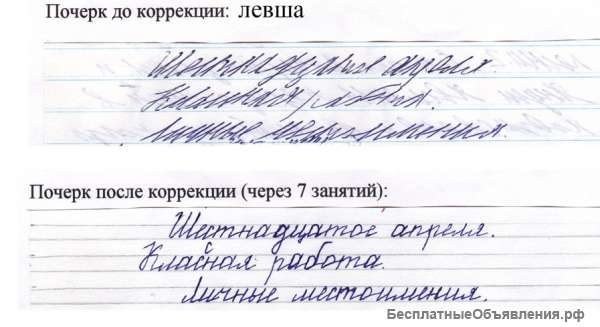 Почерк до коррекции: левша
Шестнадцатое апреля.
Классная работа.
Личные местоимения.
Почерк после коррекции (через 7 занятий):
Шестнадцатое апреля.
Класная работа.
Личные местоимения.
БесплатныеОбъявления.рф